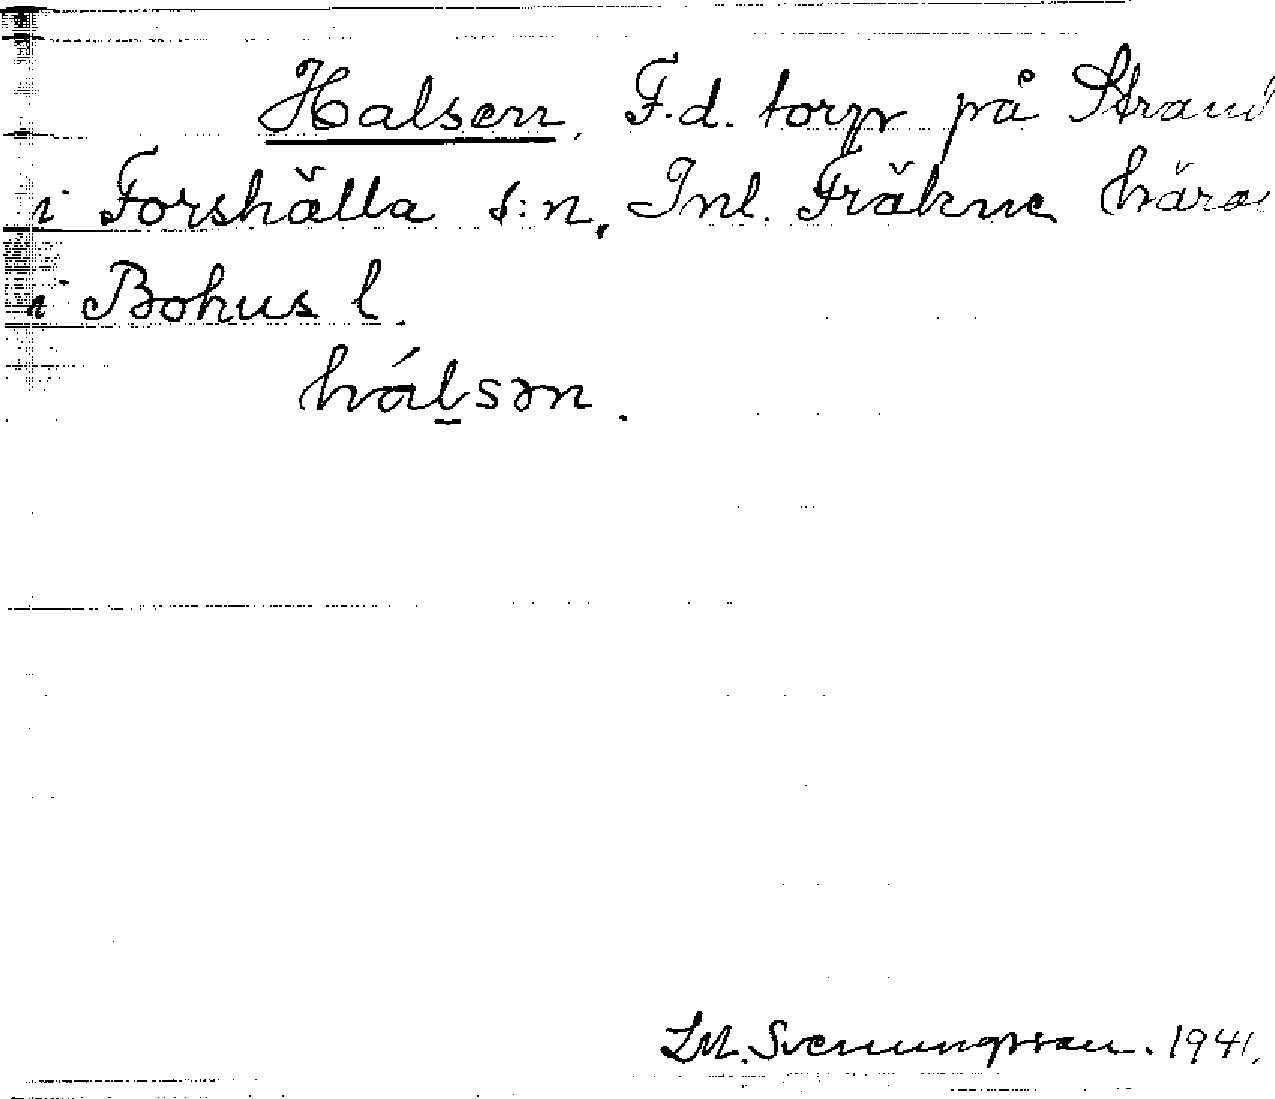 Halsen. F.d. torp på Strand
i Forshälla s:n, Inl. Fräkne hära
i Bohus l.
hál̲sən.
S.M. Svenungsson. 1941.